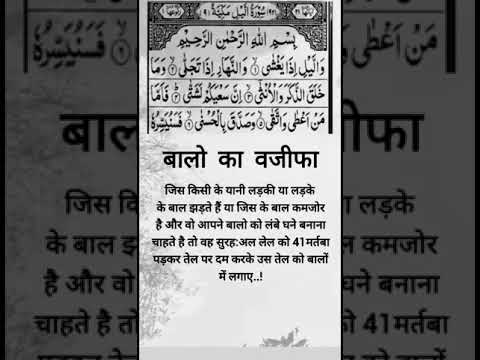 سُوْرَةُ الَّيْلِ مَكِّيَّةٌ
بِسْمِ اللّٰهِ الرَّحْمٰنِ الرَّحِيْمِ
وَالَّيْلِ اِذَا يَغْشٰى ۙ وَالنَّهَارِ اِذَا تَجَلّٰى ۙ وَمَا
خَلَقَ الذَّكَرَ وَالْاُنْثٰٓى ۙ اِنَّ سَعْيَكُمْ لَشَتّٰى ؕ فَاَمَّا
مَنْ اَعْطٰى وَاتَّقٰى ۙ وَصَدَّقَ بِالْحُسْنٰى ۙ فَسَنُيَسِّرُهٗ
बालो का वजीफा
जिस किसी के यानी लड़की या लड़के
के बाल झड़ते हैं या जिस के बाल कमजोर
है और वो आपने बालो को लंबे घने बनाना
चाहते है तो वह सुरह:अल लेल को 41मर्तबा
पड़कर तेल पर दम करके उस तेल को बालों
में लगाए..!